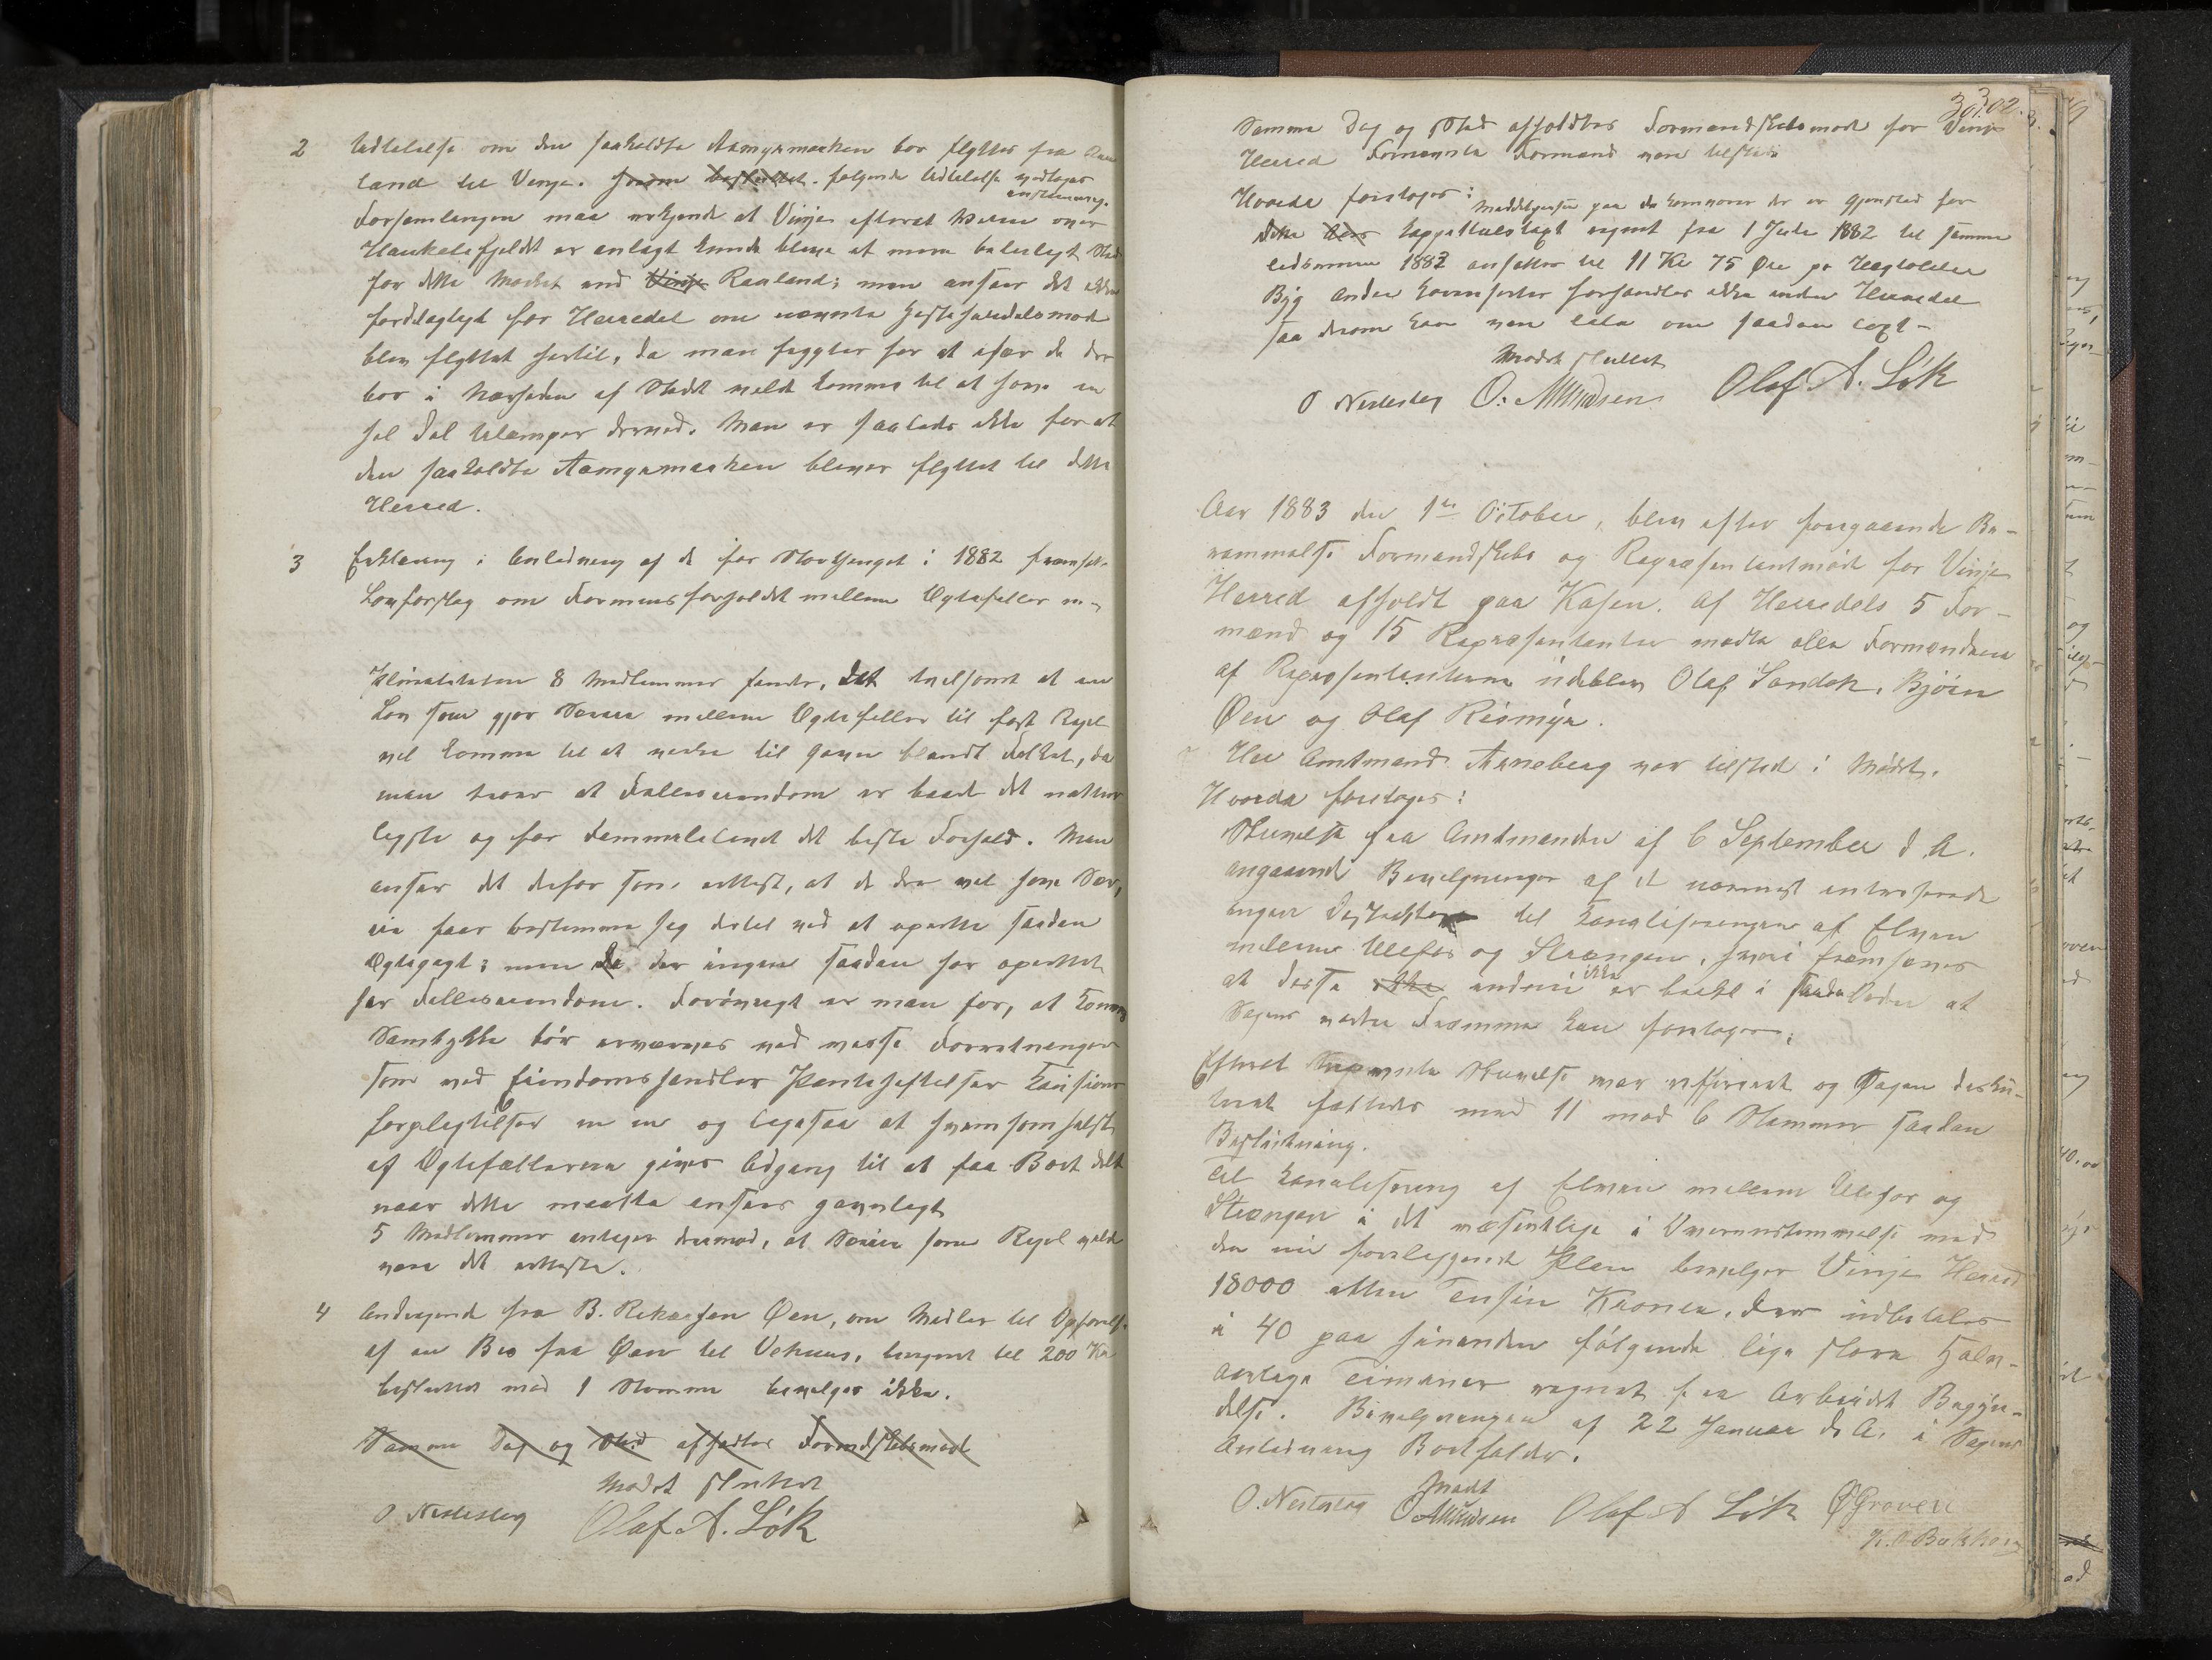 2 Udtalelse om den saakaldte Aamyrmarken bør flyttes fra Rau
land til Vinje. følgende Udtalelse vedtoges
enstemmig.
Forsamlingen maa erkjende at Vinje efterat Veien over
Haukelifjeldt er anlagt kunde blive et mere beleiligt Sted
for dette Marked end Vinje Rauland; men anseer det ikke
fordelagtigt for Herredet om nævnte Hestehandelsmarked
blev flyttet hertil, da man frygter for at især de der
bor i Nærheden af Stedet vilde komme til at have en
hel Del Ulæmper dermed. Man er saaledes ikke for at
den saakaldte Aamyrmarken bliver flyttet til dette
Herred.
3 Erklæring i Anledning af de for Storthinget i 1882 fremsatte
Lovforslag om Formuesforholdet mellem Ægtefeller m–
8 Medlemmer fandt, det tvilsomt at en
Lov som gjør Særeie mellem Ægtefeller til fast Regel
vil komme til at virke til Gavn blandt Folket, da
man troer at Felleseiendom er baade det natur
ligste og for Sammelivet det beste Forhold. Man
anser det derfor som rettest, at de der vil have Sær,
eie faar bestemme sig dertil ved at oprette saadan
Ægtepagt; men de der ingen saadan har oprettet
har Felleseiendom. Forøvrigt er man for, at Konens
Samtykke bør erverves ved visse Forretninger
som ved Eiendomshandler Pantsheftelser Kautions
forpligtelser m m og ligesaa at hvemsomhelst
af Ægtefællerne gives Adgang til at faa Boet delt
naar dette maatte ansees gavnligt
5 Medlemmer antager derimod, at Særeie som Regel vilde
være det retteste.
4 Andragende fra B. Rikardsen Øen, om Midler til Opførelse
af en Bro fra Øen til Vehuus, beregnet til 200 Kr
besluttet med 1 Stemme bevilges ikke.
Samme Dag og Sted afholdtes Formdskabsmøde
Mødet sluttet
O Nesteslog Olaf A. Løk
302.
Samme Dag og Sted afholdtes Formandskabsmøde for Vinje
Herred Fornævnte Formænd vare tilstede
Hvorda foretoges: Middelprisen paa de Kornvarer der er Gjenstand for
dette Aars Kapitelstaxt regnet fra 1 Juli 1882 til samme
tid 1883 ansættes til 11 Kr 75 Øre pr Hegtoliter
Byg andre Kornsorter forhandles ikke inden Herredet
saa derom kan være tale om saadan Taxt–
Mødet sluttet
O Nesteslog O. Amundsen Olaf A. Løk
Aar 1883 den 1ste October, blev efter foregaaende Be–
rammelse Formandskabs og Repræsentantmøde for Vinje
Herred afholdt paa Kasen. Af Herredets 5 For–
mænd og 15 Repræsentanter mødte alle Formændene
af Repræsentanterne udeblev Olaf Sandok, Bjørn
Øen og Olaf Rismyr.
Herr Amtmand Arneberg var tilstede i Mødet.
Hvorda foretoges:
Skrivelse fra Amtmanden af 6 September d. A.
angaaende Bevilgninger af de nærmest interesserede
til Kanaliseringen af Elven
mellem Ulefos og Strængen, hvori fremhæves
at disse ikke endnu ikke er bragt i saadan Orden at
Sagens videre Fremme kan foretages;
Efterat fornævnte Skrivelse var refereret og Sagen disku–
teret fattedes med 11 mod 6 Stemmer saadan
Beslutning.
Til Kanalisering af Elven mellem Ulefos og
Strengen i det væsentlige i Overensstemmelse med
den nu foreliggende Plan bevilger Vinje Herred
18000 atten Tusin Kroner, der udbetales
i 40 paa hinanden følgende lige store Halv–
aarlige Terminer regnet fra Arbeidets Begyn–
delse. Bevilgningen af 22 Januar d. A. i Sagens
Anledning Bortfalder.
Mødt
O. Nesteslog O Amundsen Olaf A Løk Ø Groven